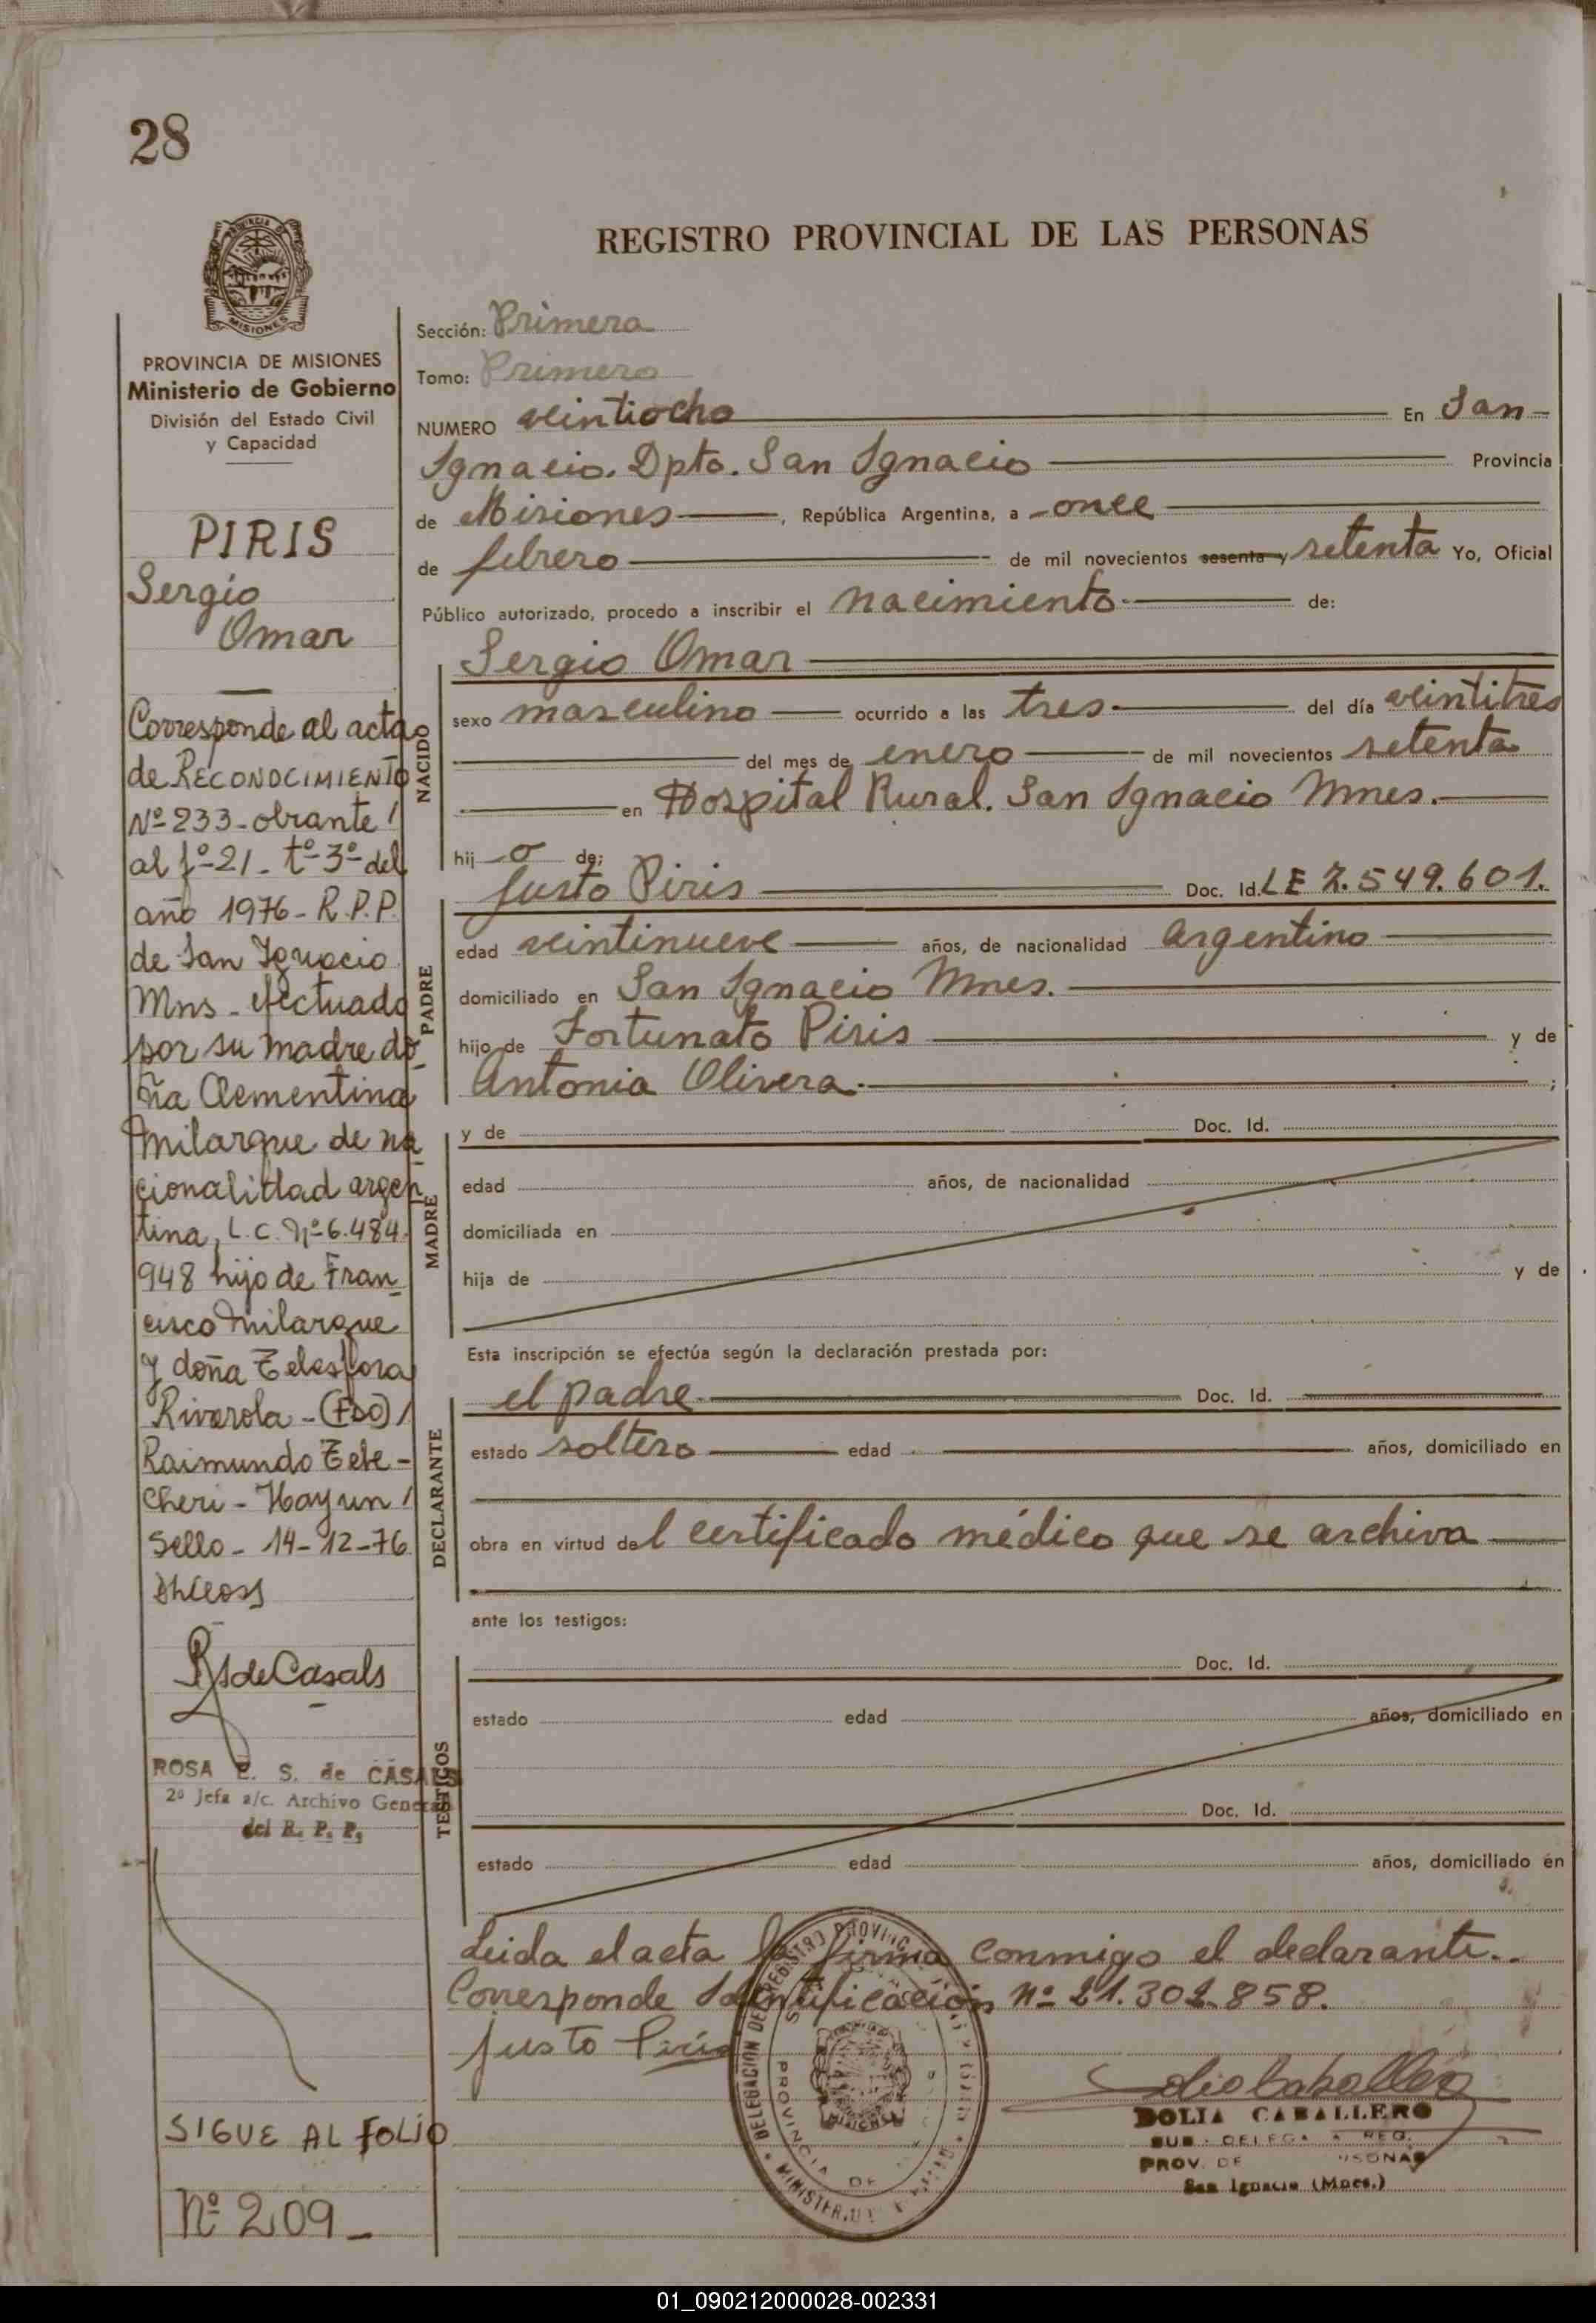 28
REGISTRO PROVINCIAL DE LAS PERSONAS
MISIONES
PROVINCIA DE MISIONES
Ministerio de Gobierno
División del Estado Civil
y Capacidad
PIRIS
Sergio
Omar
Corresponde al acta
de RECONOCIMIENTO
Nº 233 - obrante /
al fº 21 - tº 3º del
año 1976 - R.P.P.
de San Ignacio
Mns - efectuado
por su madre do
ña Clementina
Milarque de na
cionalidad argen
tina, L.C. Nº 6.484.
948 hijo de Fran
cisco Milarque
y doña Telesfora
Riverola - (FDO) /
Raimundo Tete-
cheri - Hay un /
Sello - 14-12-76
RSdeCasals
ROSA E. S. de CASALS
2º Jefa a/c. Archivo General
del R. P. P.
SIGUE AL FOLIO
Nº 209 -
Sección: Primera
Tomo: Primero
NUMERO veintiocho En San-
Ignacio. Dpto. San Ignacio Provincia
de Misiones, República Argentina, a - once
de febrero de mil novecientos sesenta y setenta Yo, Oficial
Público autorizado, procedo a inscribir el nacimiento de:
Sergio Omar
NACIDO
sexo masculino ocurrido a las tres del día veintitres
del mes de enero de mil novecientos setenta
en Hospital Rural. San Ignacio Mnes.
hij o de:
PADRE
Justo Piris Doc. Id. LE 7.549.601.
edad veintinueve años, de nacionalidad argentino
domiciliado en San Ignacio Mnes.
hijo de Fortunato Piris y de
Antonia Olivera ;
MADRE
y de Doc. Id.
edad años, de nacionalidad
domiciliada en
hija de y de
Esta inscripción se efectúa según la declaración prestada por:
DECLARANTE
el padre Doc. Id.
estado soltero edad años, domiciliado en
obra en virtud del certificado médico que se archiva
ante los testigos:
TESTIGOS
Doc. Id.
estado edad años, domiciliado en
Doc. Id.
estado edad años, domiciliado en
Leida el acta la firma conmigo el declarante..
Corresponde Identificación Nº 21.302.858.
Justo Piris
DELEGACION DEL REGISTRO PROVINCIAL
PROVINCIA DE
MISIONES
DOLIA CABALLERO
SUB - DELEGA A REG.
PROV. DE
San Ignacio (Mnes.)
01_090212000028-002331